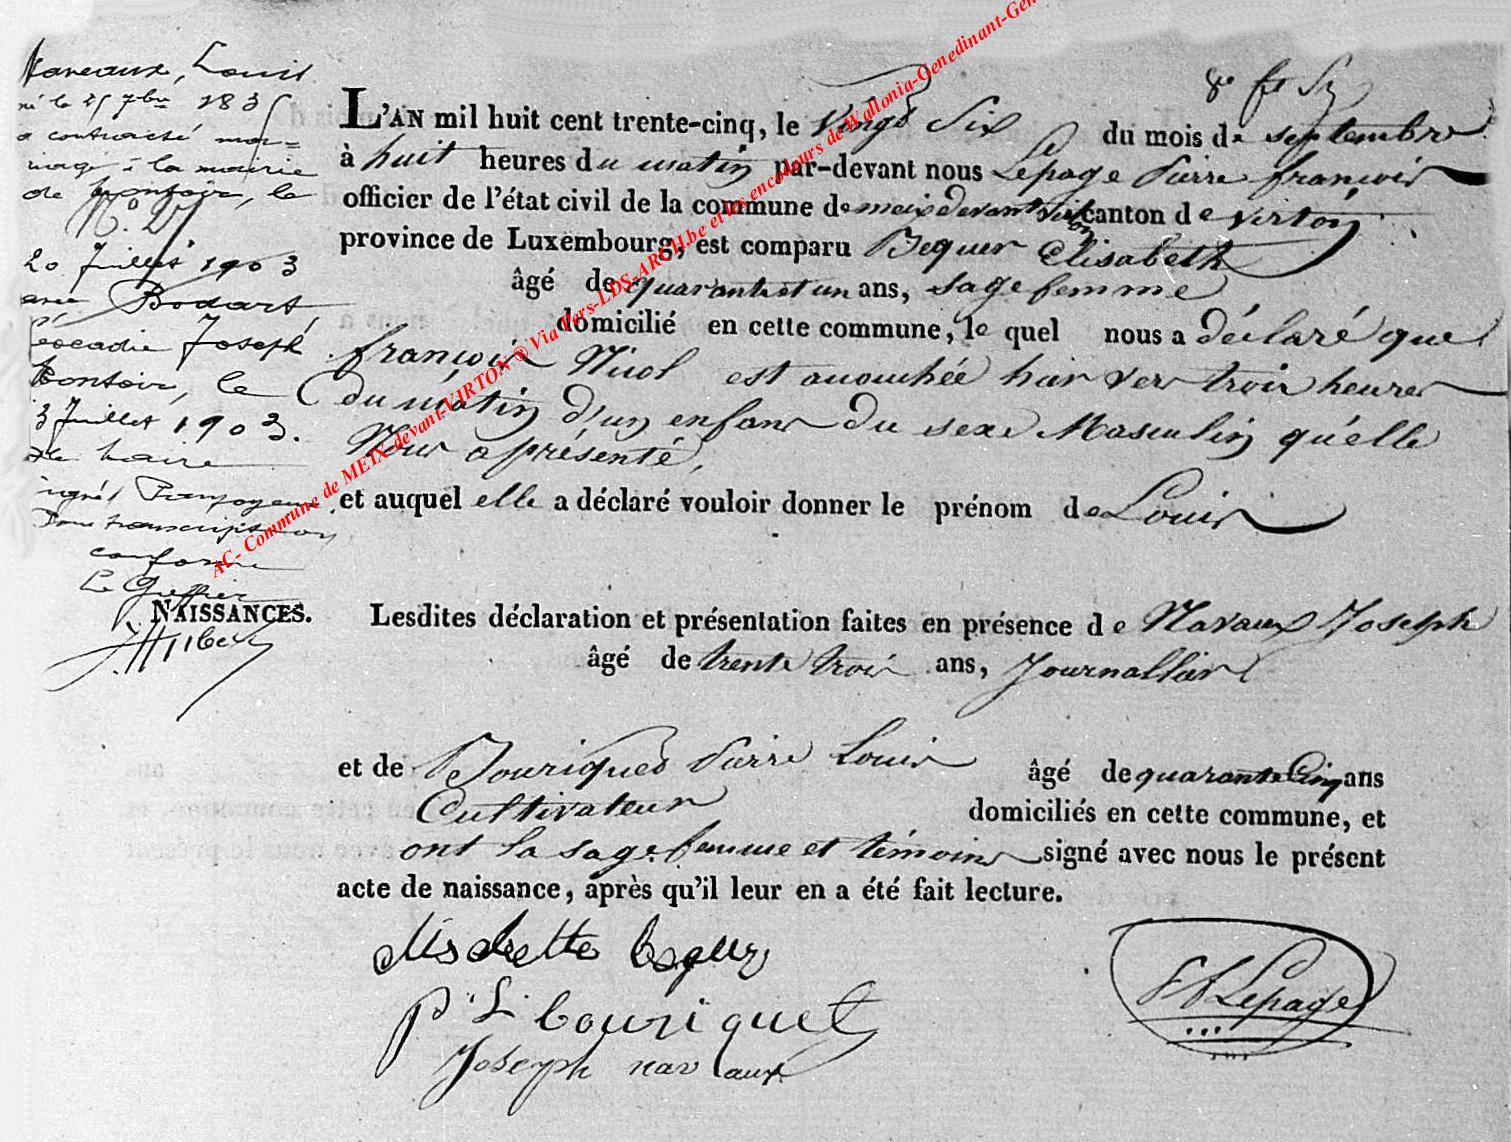 Navaux, Louis
né le 25 7bre 1835
a contracté ma-
riage à la mairie
de Montoir, le
N.° 21
20 Juillet 1903
avec Bodart
Léocadie Joseph
Montoir, le
3 Juillet 1903.
Le Maire
signé
Pour transcription
conforme
Le Greffier
NAISSANCES.
L'AN mil huit cent trente-cinq, le Vingt Six du mois de septembre
à huit heures du matin par-devant nous Lepage Pierre françois
officier de l'état civil de la commune de meix devant virton canton de virton
province de Luxembourg, est comparu Bequer Elisabeth
âgé de quarante et un ans, sage femme
domicilié en cette commune, le quel nous a déclaré que
françois Nicol est acouchée hier ver trois heures
du matin d'un enfant du sexe Masculin qu'elle
Nous a présenté,
et auquel elle a déclaré vouloir donner le prénom de Louis
Lesdites déclaration et présentation faites en présence de Navaux Joseph
âgé de trente trois ans, Journallier
et de Bouriquet Pierre Louis âgé de quarante Cinq ans
Cultivateur domiciliés en cette commune, et
ont la sage femme et témoins signé avec nous le présent
acte de naissance, après qu'il leur en a été fait lecture.
P. L. bouriquet
Joseph navaux
Lepage
AC- Commune de MEIX-devant-VIRTON ® Via Pers-LDS-ARCH.be et les encodeurs de Wallonia-Genedinant-Gen